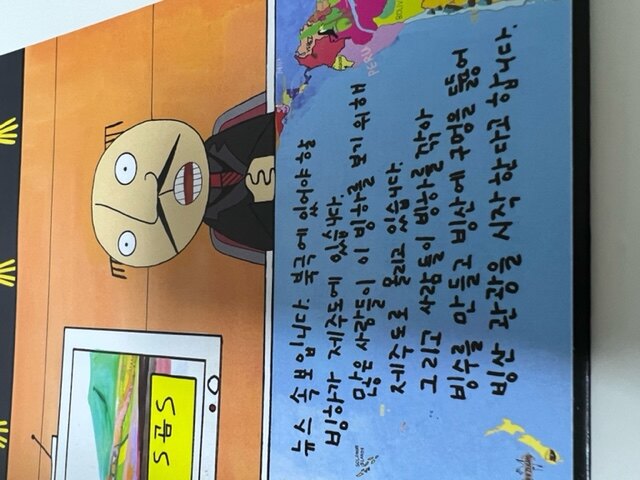 PERU
S곰S
뉴스 속보입니다. 북극에 있어야 할
빙하가 제주도에 있습니다
많은 사람들이 이 빙하를 보기 위해
제주도로 몰리고 있습니다.
그리고 사람들이 빙하를 깎아
빙수를 만들고 빙산에 구멍을 뚫어
빙산 관광을 시작한다고 합니다.